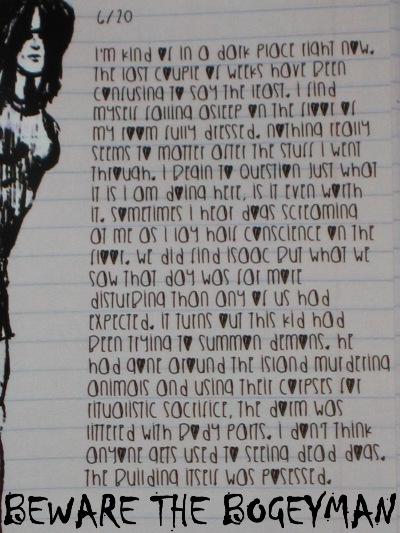 6/20
I'm kind of in a dark place right now.
The last couple of weeks have been
confusing to say the least. I find
myself falling asleep on the floor of
my room fully dressed. nothing really
seems to matter after the stuff I went
through. I begin to question just what
it is I am doing here, is it even worth
it. sometimes I hear dogs screaming
at me as I lay half conscience on the
floor. we did find isaac but what we
saw that day was far more
disturbing than any of us had
expected. it turns out this kid had
been trying to summon demons. he
had gone around the island murdering
animals and using their corpses for
ritualistic sacrifice, the dorm was
littered with body parts. I don't think
anyone gets used to seeing dead dogs.
The building itself was posessed.
BEWARE THE BOGEYMAN